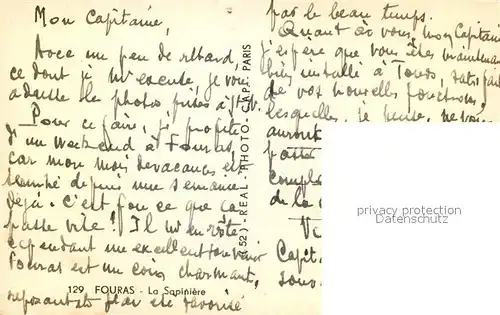 Mon Capitaine,
Avec un peu de retard,
ce dont je m'excuse, je vous
adresse les photos prises à
Pour ce faire, je profite
d'un weekend à Fouras,
car mon mois de vacances est
terminé depuis une semaine
déjà. C'est fou ce que ça
passe vite ! Il m'en reste
cependant un excellent souvenir
Fouras est un coin charmant,
reposant et j'ai été favorisé
par le beau temps.
Quant à vous, mon Capitaine
j'espère que vous êtes maintenant
bien installé à Tours, satisfait
de vos nouvelles fonctions,
lesquelles, je pense, ne vous
auront
pas
de la
Capit.
129 FOURAS - La Sapinière
(52) - REAL-PHOTO - C.A.P. PARIS
privacy protection